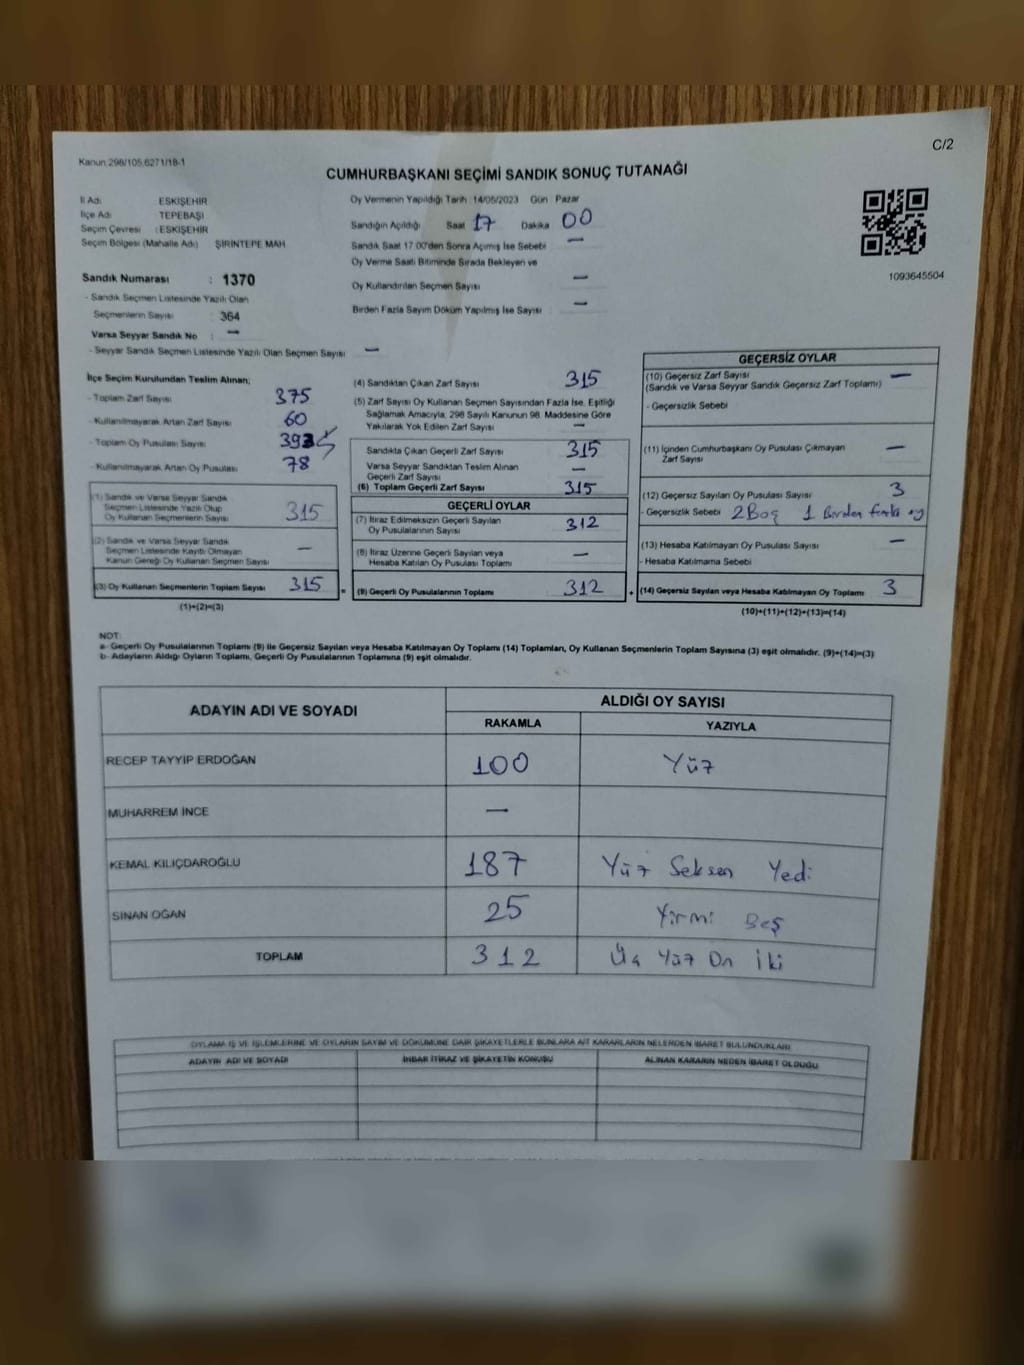 C/2
Kanun.298/105.6271/18-1
CUMHURBAŞKANI SEÇİMİ SANDIK SONUÇ TUTANAĞI
İl Adı ESKİŞEHİR
İlçe Adı TEPEBAŞI
Seçim Çevresi : ESKİŞEHİR
Seçim Bölgesi (Mahalle Adı) ŞİRİNTEPE MAH
Sandık Numarası : 1370
- Sandık Seçmen Listesinde Yazılı Olan
Seçmenlerin Sayısı : 364
Varsa Seyyar Sandık No : —
- Seyyar Sandık Seçmen Listesinde Yazılı Olan Seçmen Sayısı —
Oy Vermenin Yapıldığı Tarih 14/05/2023 Gün Pazar
Sandığın Açıldığı Saat 17 Dakika 00
Sandık Saat 17.00'den Sonra Açımış İse Sebebi —
Oy Verme Saati Bitiminde Sırada Bekleyen ve
Oy Kullandırılan Seçmen Sayısı —
Birden Fazla Sayım Döküm Yapılmış İse Sayısı —
1093645504
İlçe Seçim Kurulundan Teslim Alınan;
- Toplam Zarf Sayısı 375
- Kullanılmayarak Artan Zarf Sayısı 60
- Toplam Oy Pusulası Sayısı
- Kullanılmayarak Artan Oy Pusulası 78
(1) Sandık ve Varsa Seyyar Sandık
Seçmen Listesinde Yazılı Olup
Oy Kullanan Seçmenlerin Sayısı 315
(2) Sandık ve Varsa Seyyar Sandık
Seçmen Listesinde Kayıtlı Olmayan
Kanun Gereği Oy Kullanan Seçmen Sayısı —
(3) Oy Kullanan Seçmenlerin Toplam Sayısı 315 =
(1)+(2)=(3)
(4) Sandıktan Çıkan Zarf Sayısı 315
(5) Zarf Sayısı Oy Kullanan Seçmen Sayısından Fazla İse, Eşitliği
Sağlamak Amacıyla; 298 Sayılı Kanunun 98. Maddesine Göre
Yakılarak Yok Edilen Zarf Sayısı —
Sandıkta Çıkan Geçerli Zarf Sayısı 315
Varsa Seyyar Sandıktan Teslim Alınan
Geçerli Zarf Sayısı —
(6) Toplam Geçerli Zarf Sayısı 315
GEÇERLİ OYLAR
(7) İtiraz Edilmeksizin Geçerli Sayılan
Oy Pusulalarının Sayısı 312
(8) İtiraz Üzerine Geçerli Sayılan veya
Hesaba Katılan Oy Pusulası Toplamı —
(9) Geçerli Oy Pusulalarının Toplamı 312 +
GEÇERSİZ OYLAR
(10) Geçersiz Zarf Sayısı —
(Sandık ve Varsa Seyyar Sandık Geçersiz Zarf Toplamı)
- Geçersizlik Sebebi
(11) İçinden Cumhurbaşkanı Oy Pusulası Çıkmayan
Zarf Sayısı —
(12) Geçersiz Sayılan Oy Pusulası Sayısı 3
- Geçersizlik Sebebi 2 Boş 1 Birden fazla oy
(13) Hesaba Katılmayan Oy Pusulası Sayısı —
- Hesaba Katılmama Sebebi
(14) Geçersiz Sayılan veya Hesaba Katılmayan Oy Toplamı 3
(10)+(11)+(12)+(13)=(14)
NOT:
a- Geçerli Oy Pusulalarının Toplamı (9) ile Geçersiz Sayılan veya Hesaba Katılmayan Oy Toplamı (14) Toplamları, Oy Kullanan Seçmenlerin Toplam Sayısına (3) eşit olmalıdır. (9)+(14)=(3)
b- Adayların Aldığı Oyların Toplamı, Geçerli Oy Pusulalarının Toplamına (9) eşit olmalıdır.
ADAYIN ADI VE SOYADI ALDIĞI OY SAYISI
RAKAMLA YAZIYLA
RECEP TAYYİP ERDOĞAN 100 Yüz
MUHARREM İNCE —
KEMAL KILIÇDAROĞLU 187 Yüz Seksen Yedi
SİNAN OĞAN 25 Yirmi Beş
TOPLAM 312 Üç Yüz On İki
OYLAMA İŞ VE İŞLEMLERİNE VE OYLARIN SAYIM VE DÖKÜMÜNE DAİR ŞİKAYETLERLE BUNLARA AİT KARARLARIN NELERDEN İBARET BULUNDUKLARI
ADAYIN ADI VE SOYADI İHBAR İTİRAZ VE ŞİKAYETİN KONUSU ALINAN KARARIN NEDEN İBARET OLDUĞU